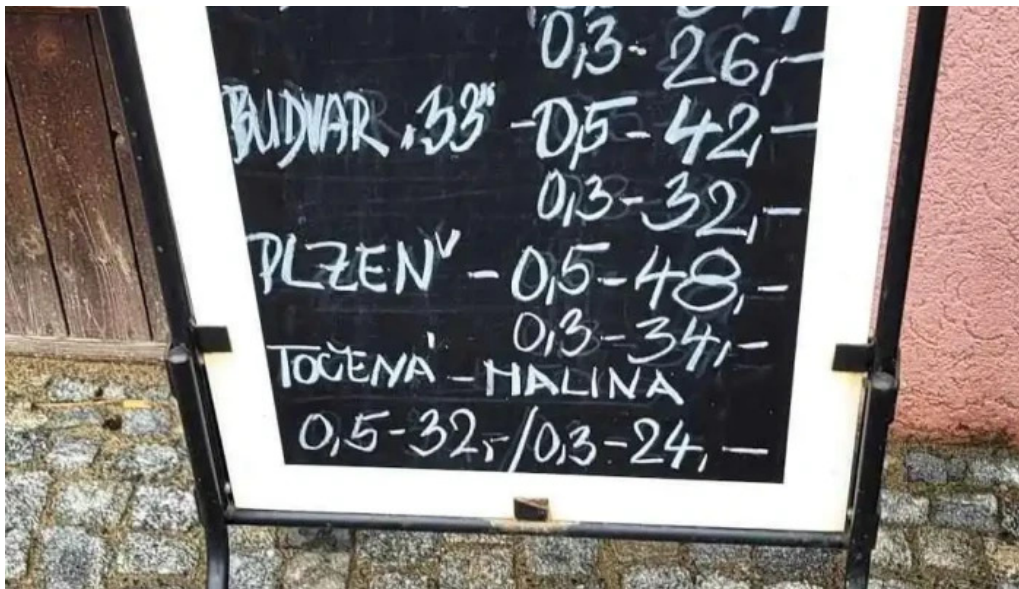 0,3-26,-
BUDVAR „33" -0,5-42,-
0,3-32,-
PLZEŇ -0,5-48,-
0,3-34,-
TOČENÁ - MALINA
0,5-32,-/0,3-24,-